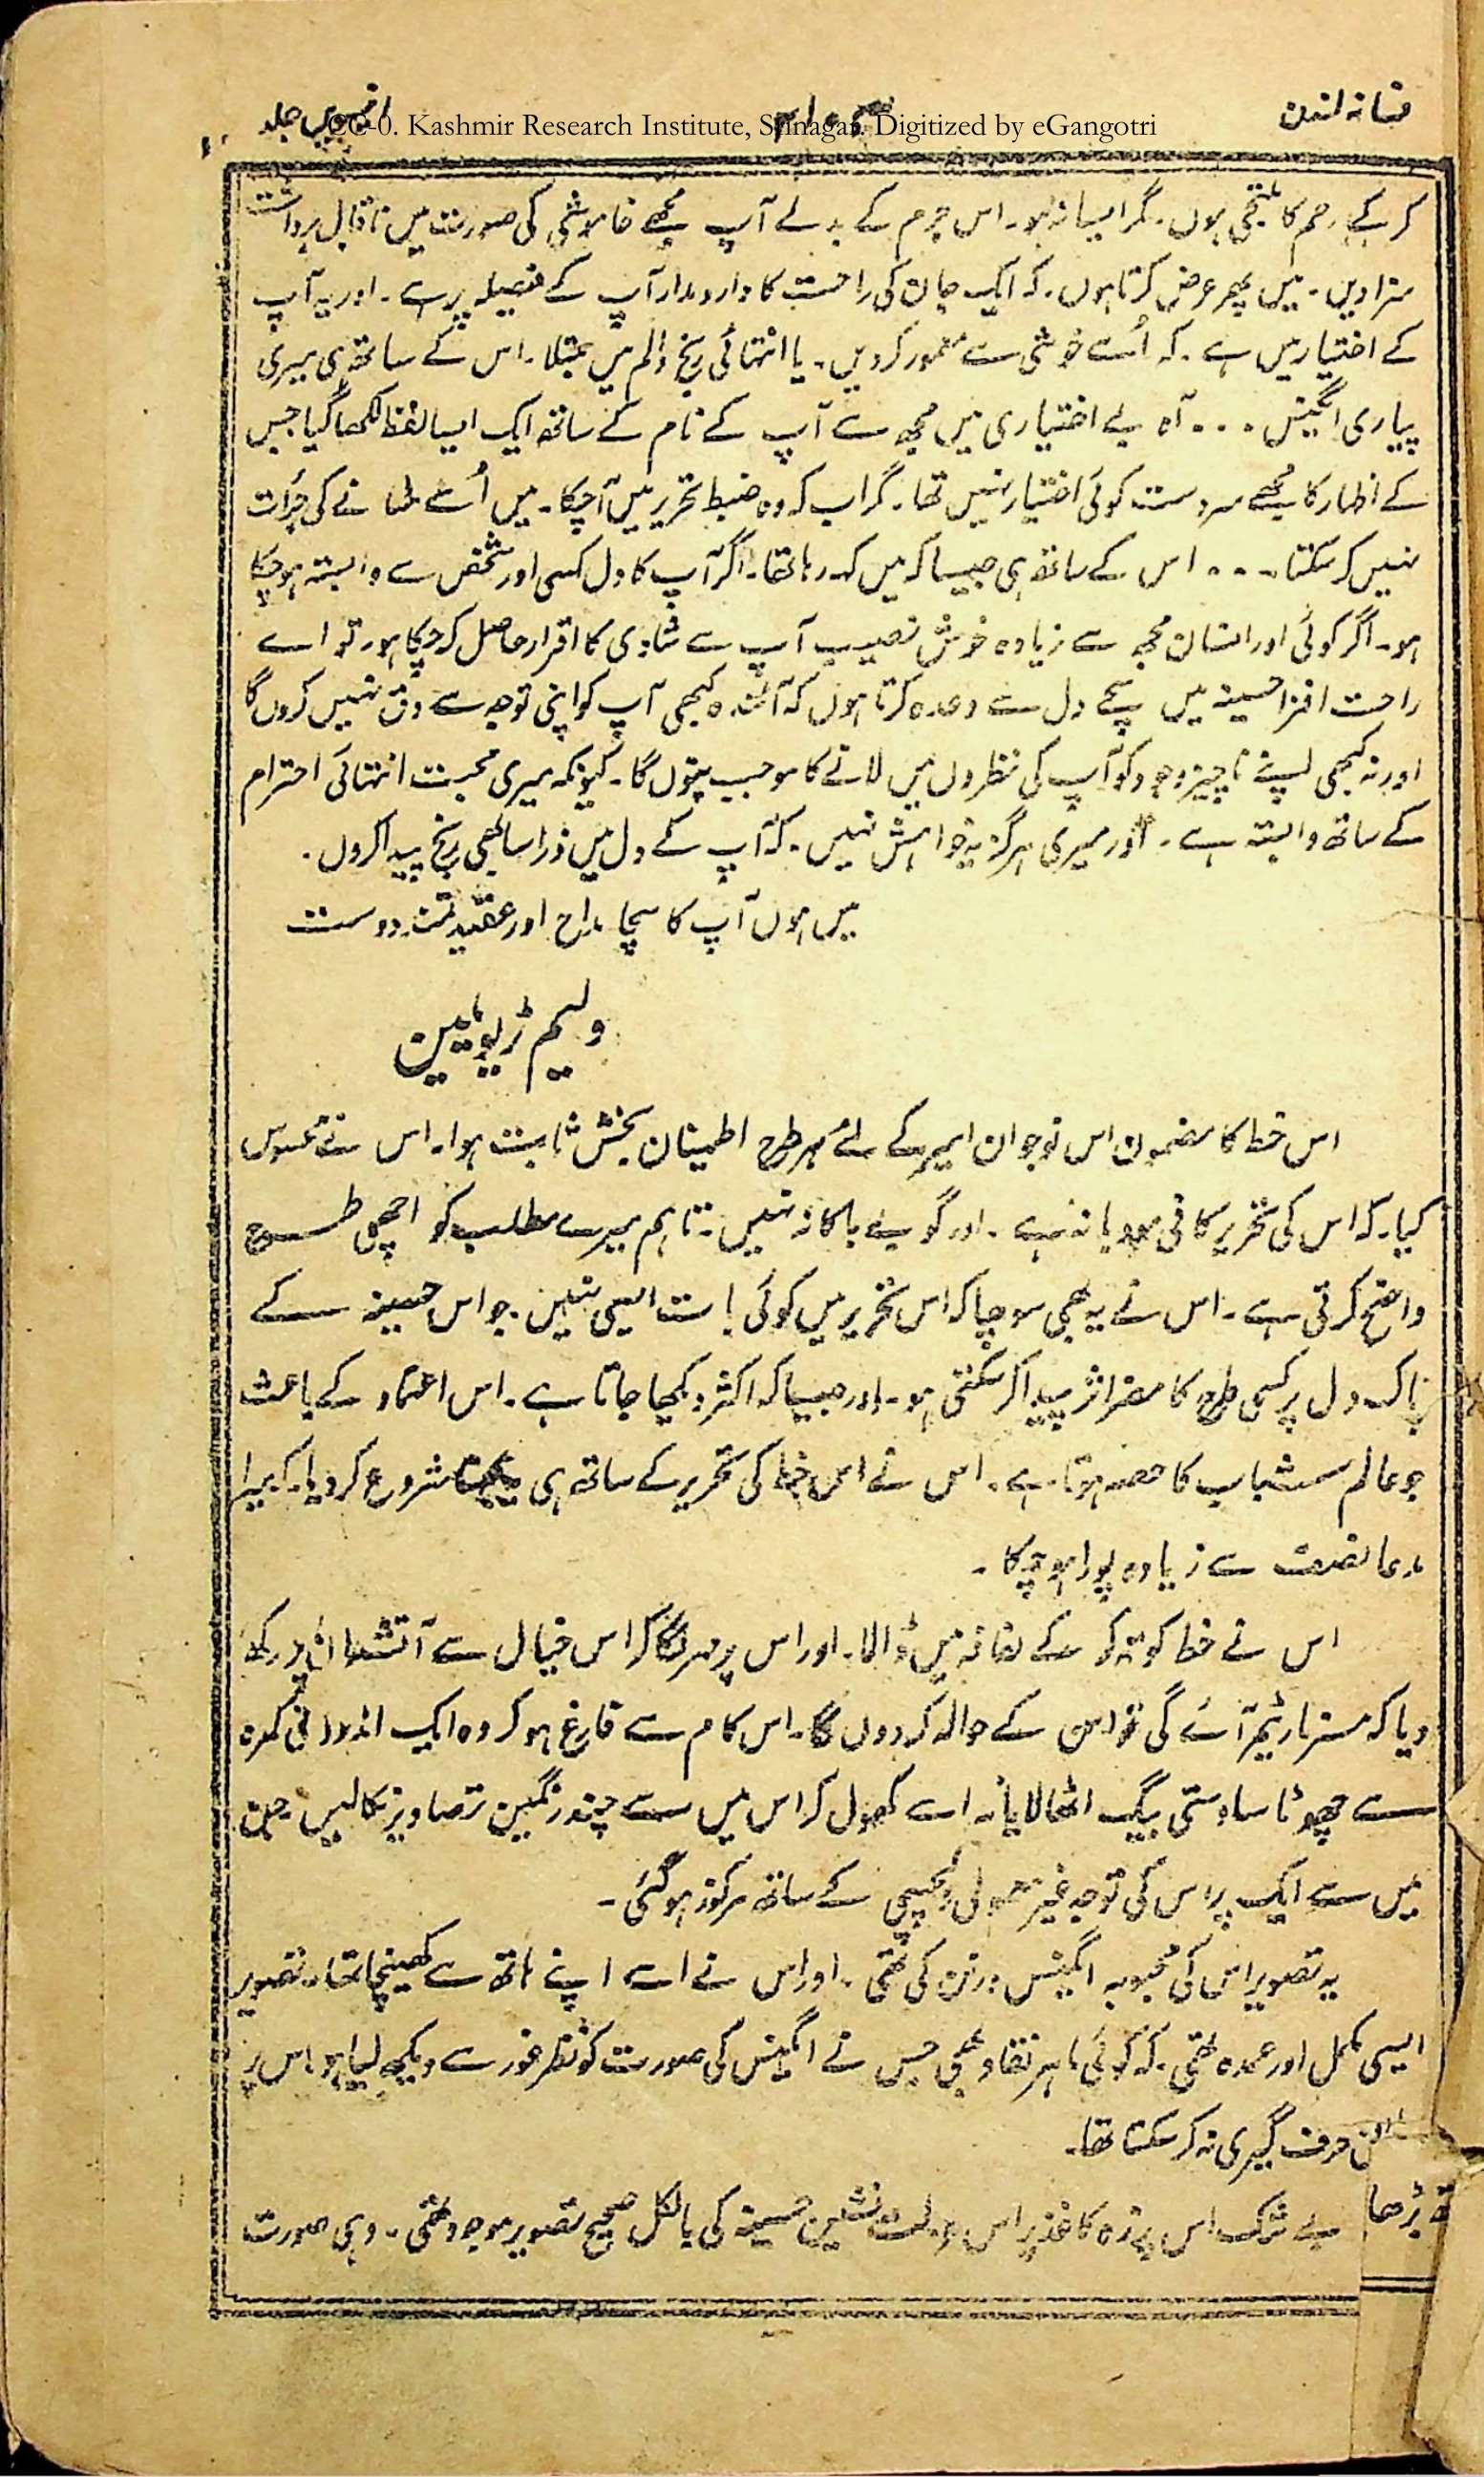 فسانہ لندن
انیسویں جلد
CC-0. Kashmir Research Institute, Srinagar. Digitized by eGangotri
کر کے رحم کا ملتجی ہوں۔ مگر ایسا نہ ہو۔ اس جرم کے بدلے آپ مجھے خاموشی کی صورت میں ناقابل برداشت
سزا دیں۔ میں پھر عرض کرتا ہوں۔ کہ ایک جان کی راحت کا دارومدار آپ کے فیصلہ پر ہے۔ اور یہ آپ
کے اختیار میں ہے۔ کہ اُسے خوشی سے معمور کر دیں۔ یا انتہائی رنج و الم میں مبتلا۔ اس کے ساتھ ہی میری
پیاری ایگنیس ... آہ بے اختیاری میں مجھ سے آپ کے نام کے ساتھ ایک ایسا لفظ لکھا گیا جس
کے اظہار کا مجھے سردست کوئی اختیار نہیں تھا۔ مگر اب کہ وہ ضبط تحریر میں آچکا۔ میں اُسے مٹانے کی جرأت
نہیں کر سکتا ... اس کے ساتھ ہی جیسا کہ میں کہہ رہا تھا۔ اگر آپ کا دل کسی اور شخص سے وابستہ ہو چکا
ہو۔ اگر کوئی اور انسان مجھ سے زیادہ خوش نصیب آپ سے شادی کا اقرار حاصل کر چکا ہو۔ تو اے
راحت افزا حسینہ میں سچے دل سے وعدہ کرتا ہوں کہ آئندہ کبھی آپ کو اپنی توجہ سے دق نہیں کروں گا
اور نہ کبھی اپنے ناچیز وجود کو آپ کی نظروں میں لانے کا موجب بنوں گا۔ کیونکہ میری محبت انتہائی احترام
کے ساتھ وابستہ ہے۔ اور میری ہرگز یہ خواہش نہیں۔ کہ آپ کے دل میں ذرا سا بھی رنج پیدا کروں۔
میں ہوں آپ کا سچا مداح اور عقیدتمند دوست
ولیم ٹریویلین
اس خط کا مضمون اس نوجوان امیر کے لئے ہر طرح اطمینان بخش ثابت ہوا۔ اس نے محسوس
کیا۔ کہ اس کی تحریر کافی مودبانہ ہے۔ اور گو بے باکانہ نہیں۔ تاہم میرے مطلب کو اچھی طرح
واضح کرتی ہے۔ اس نے یہ بھی سوچا کہ اس تحریر میں کوئی بات ایسی نہیں۔ جو اس حسینہ کے
پاک دل پر کسی طرح کا مضر اثر پیدا کر سکتی ہو۔ اور جیسا کہ اکثر دیکھا جاتا ہے۔ اس اعتماد کے باعث
جو عالم شباب کا حصہ ہوتا ہے۔ اس نے اس خط کی تحریر کے ساتھ ہی سمجھنا شروع کر دیا۔ کہ میرا
مدعا نصف سے زیادہ پورا ہو چکا۔
اس نے خط کو تہ کر کے لفافہ میں ڈالا۔ اور اس پر مہر لگا کر اس خیال سے آتشدان پر رکھ
دیا کہ مسز مارٹیمر آئے گی تو اس کے حوالہ کر دوں گا۔ اس کام سے فارغ ہو کر وہ ایک اندرونی کمرہ
سے چھوٹا سا دستی بیگ اٹھا لایا۔ اسے کھول کر اس میں سے چند رنگین تصاویر نکالیں۔ جن
میں سے ایک پر اس کی توجہ غیر معمولی دلچسپی کے ساتھ مرکوز ہو گئی۔
یہ تصویر اس کی محبوبہ ایگنیس ورنن کی تھی۔ اور اس نے اسے اپنے ہاتھ سے کھینچا تھا۔ تصویر
ایسی مکمل اور عمدہ تھی۔ کہ کوئی ماہر نقاد بھی جس نے ایگنیس کی صورت کو نظر غور سے دیکھ لیا ہو اس پر
حرف گیری نہ کر سکتا تھا۔
بے شک اس پرزہ کاغذ پر اس عزلت نشین حسینہ کی بالکل صحیح تصویر موجود تھی۔ وہی صورت